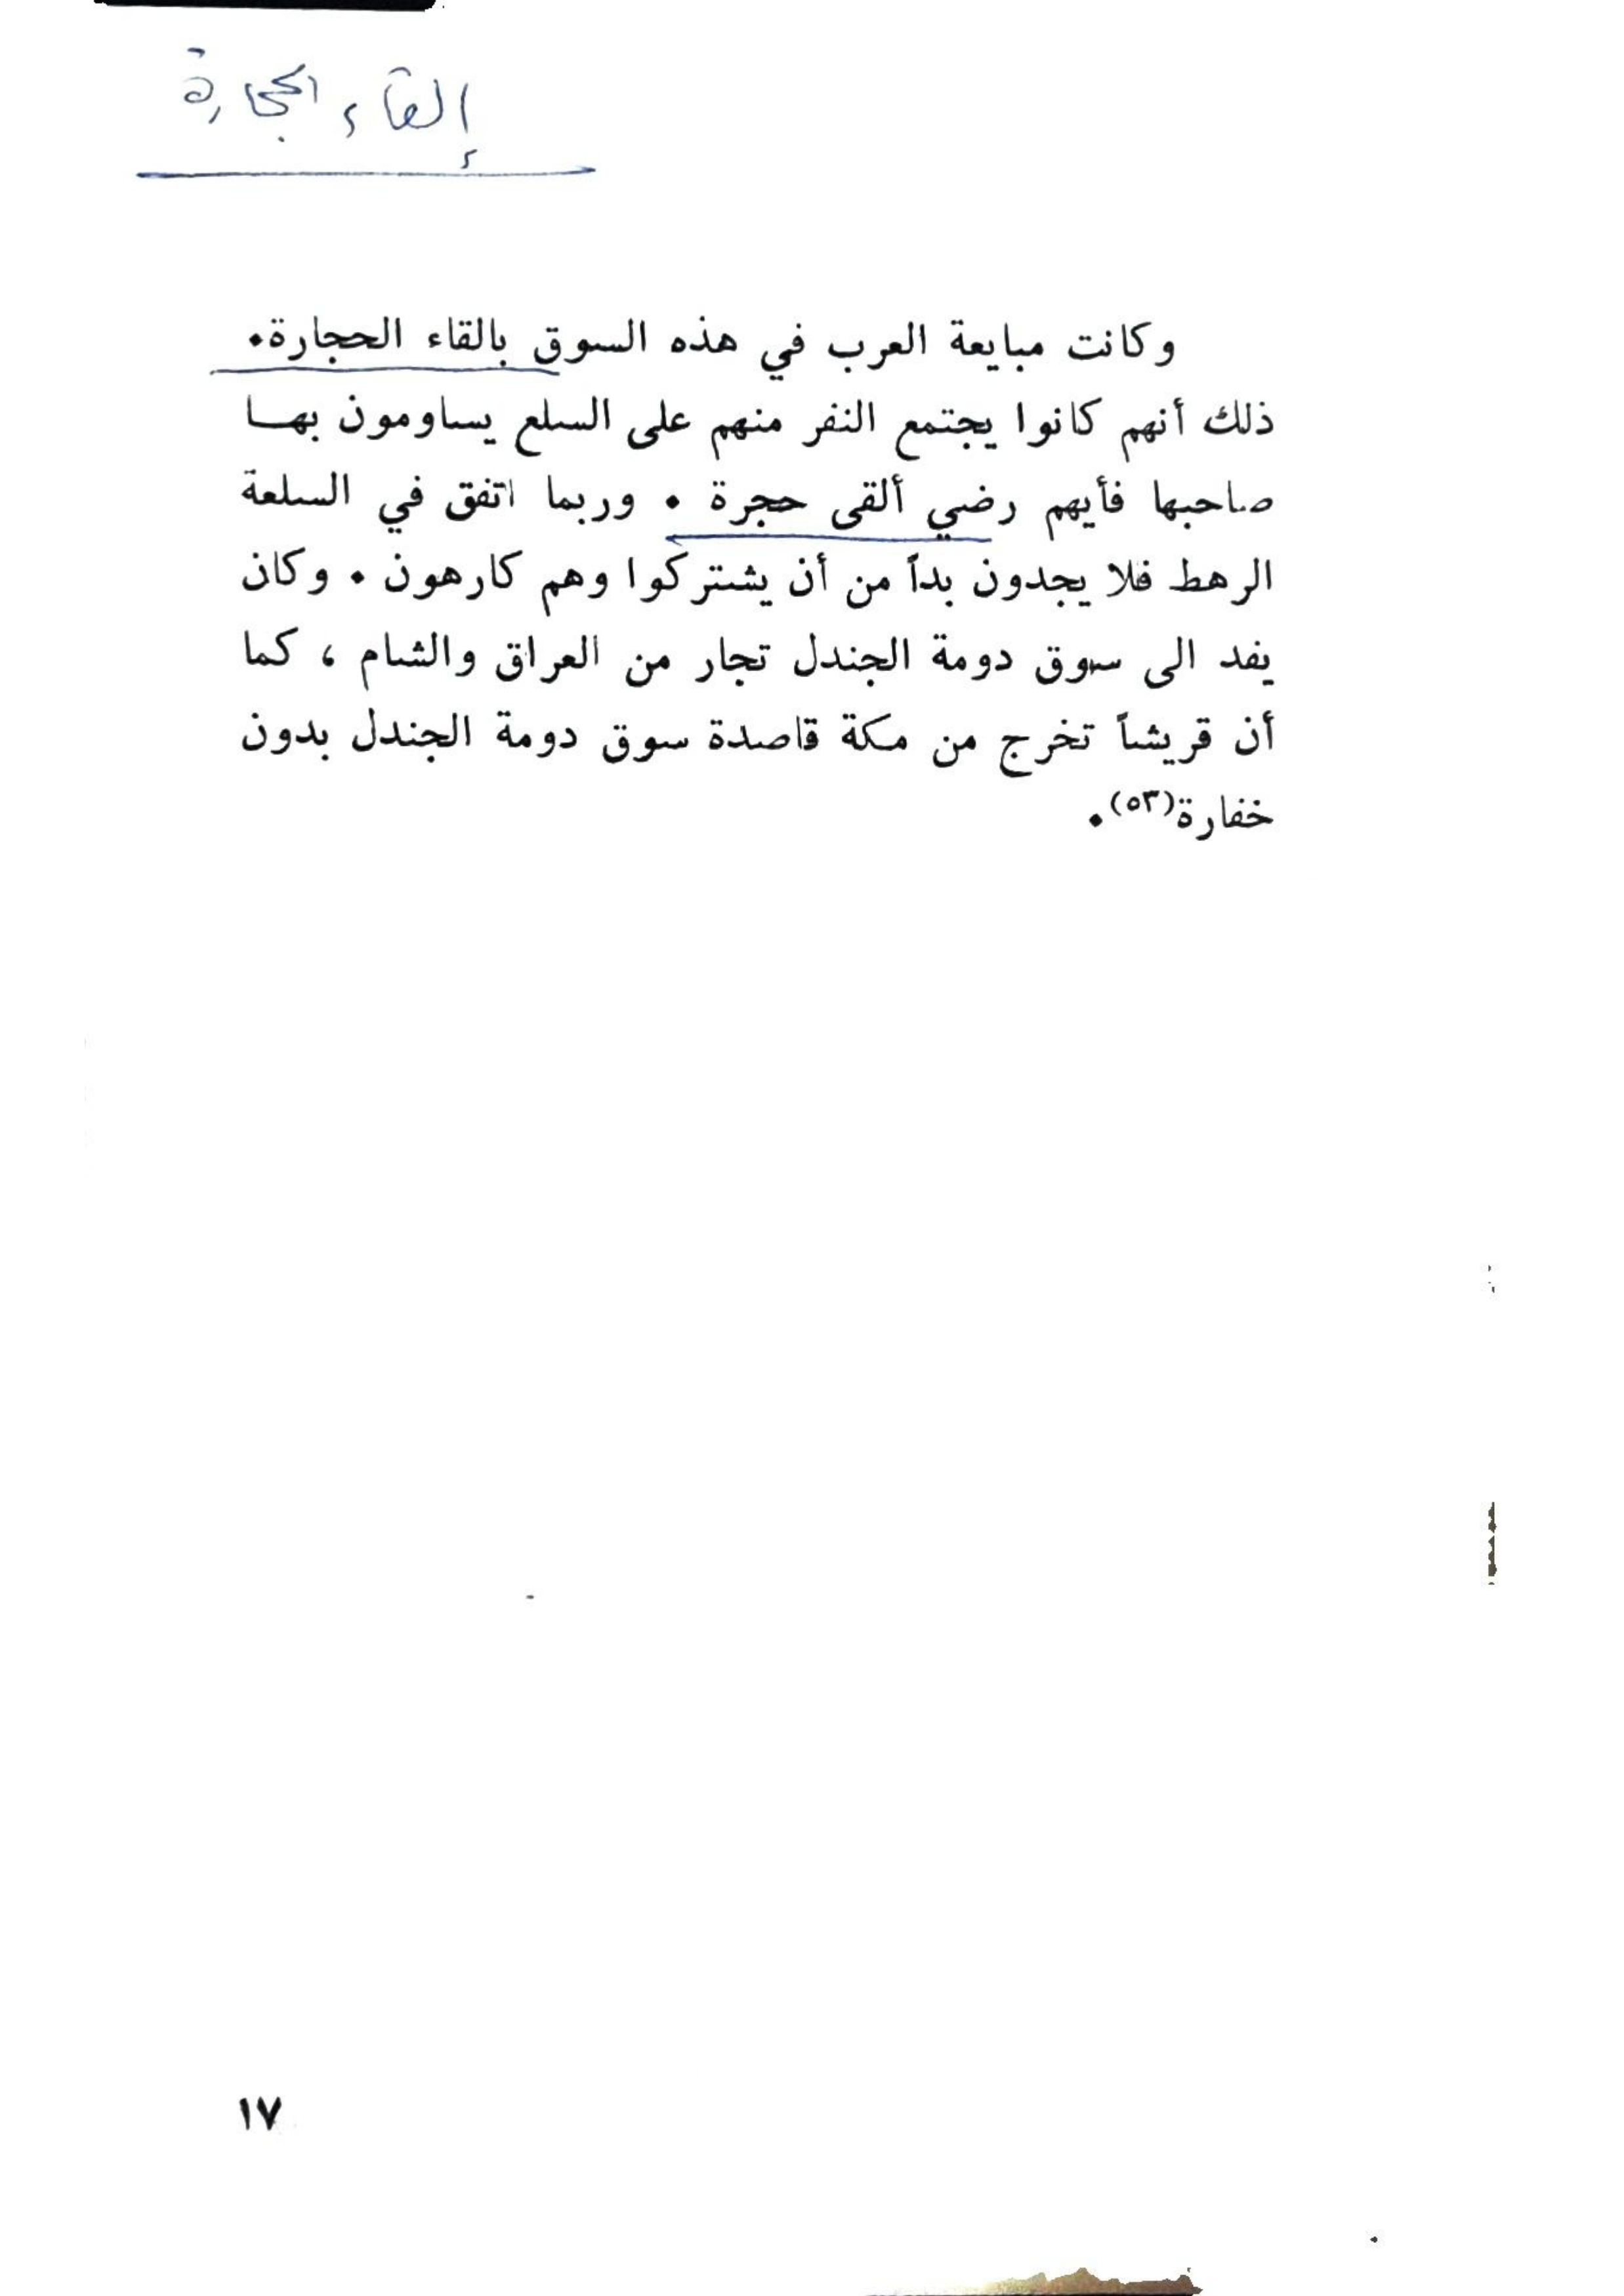 إلقاء الحجارة
وكانت مبايعة العرب في هذه السوق بالقاء الحجارة.
ذلك أنهم كانوا يجتمع النفر منهم على السلع يساومون بهـا
صاحبها فأيهم رضي ألقى حجرة . وربما اتفق في السلعة
الرهط فلا يجدون بداً من أن يشتركوا وهم كارهون . وكان
يفد الى سوق دومة الجندل تجار من العراق والشام ، كما
أن قريشاً تخرج من مكة قاصدة سوق دومة الجندل بدون
خفارة(٥٣).
١٧